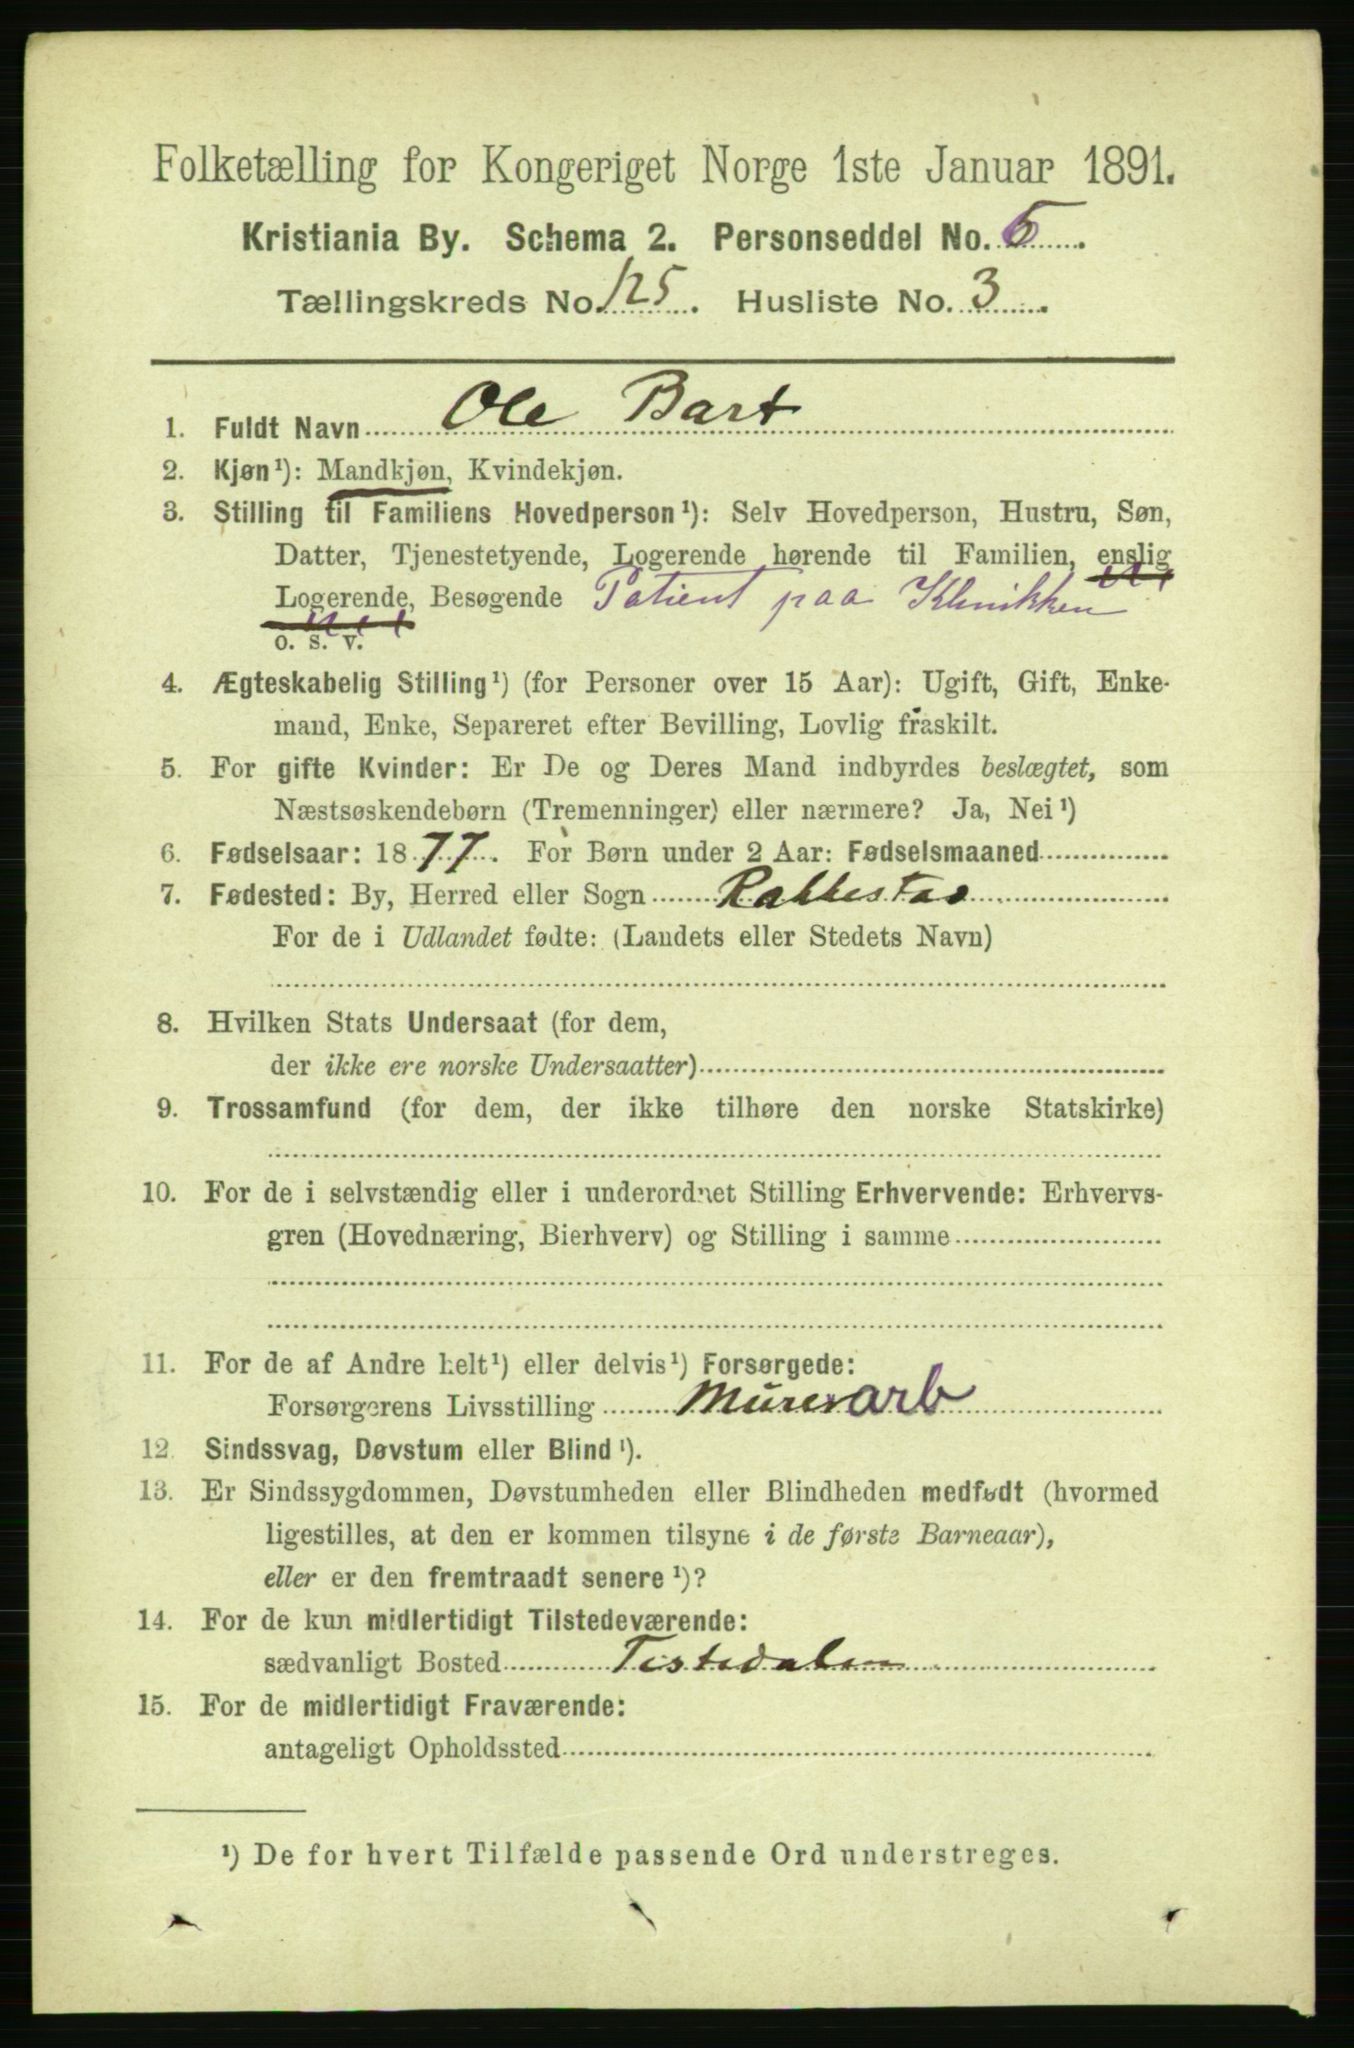 Folketælling for Kongeriget Norge 1ste Januar 1891.
Kristiania By. Schema 2. Personseddel No. 6.
Tællingskreds No. 125. Husliste No. 3.
1. Fuldt Navn Ole Bart
2. Kjøn¹): Mandkjøn, Kvindekjøn.
3. Stilling til Familiens Hovedperson¹): Selv Hovedperson, Hustru, Søn,
Datter, Tjenestetyende, Logerende hørende til Familien, enslig
Logerende, Besøgende Patient paa Klinikken
o. s. v.
4. Ægteskabelig Stilling¹) (for Personer over 15 Aar): Ugift, Gift, Enke-
mand, Enke, Separeret efter Bevilling, Lovlig fraskilt.
5. For gifte Kvinder: Er De og Deres Mand indbyrdes beslægtet, som
Næstsøskendebørn (Tremenninger) eller nærmere? Ja, Nei¹)
6. Fødselsaar: 1877. For Børn under 2 Aar: Fødselsmaaned
7. Fødested: By, Herred eller Sogn Rakkestad
For de i Udlandet fødte: (Landets eller Stedets Navn)
8. Hvilken Stats Undersaat (for dem,
der ikke ere norske Undersaatter)
9. Trossamfund (for dem, der ikke tilhøre den norske Statskirke)
10. For de i selvstændig eller i underordnet Stilling Erhvervende: Erhvervs-
gren (Hovednæring, Bierhverv) og Stilling i samme
11. For de af Andre helt¹) eller delvis¹) Forsørgede:
Forsørgerens Livsstilling Murerarb
12. Sindssvag, Døvstum eller Blind¹).
13. Er Sindssygdommen, Døvstumheden eller Blindheden medfødt (hvormed
ligestilles, at den er kommen tilsyne i de første Barneaar),
eller er den fremtraadt senere¹)?
14. For de kun midlertidigt Tilstedeværende:
sædvanligt Bosted Tistedalen
15. For de midlertidigt Fraværende:
antageligt Opholdssted
¹) De for hvert Tilfælde passende Ord understreges.